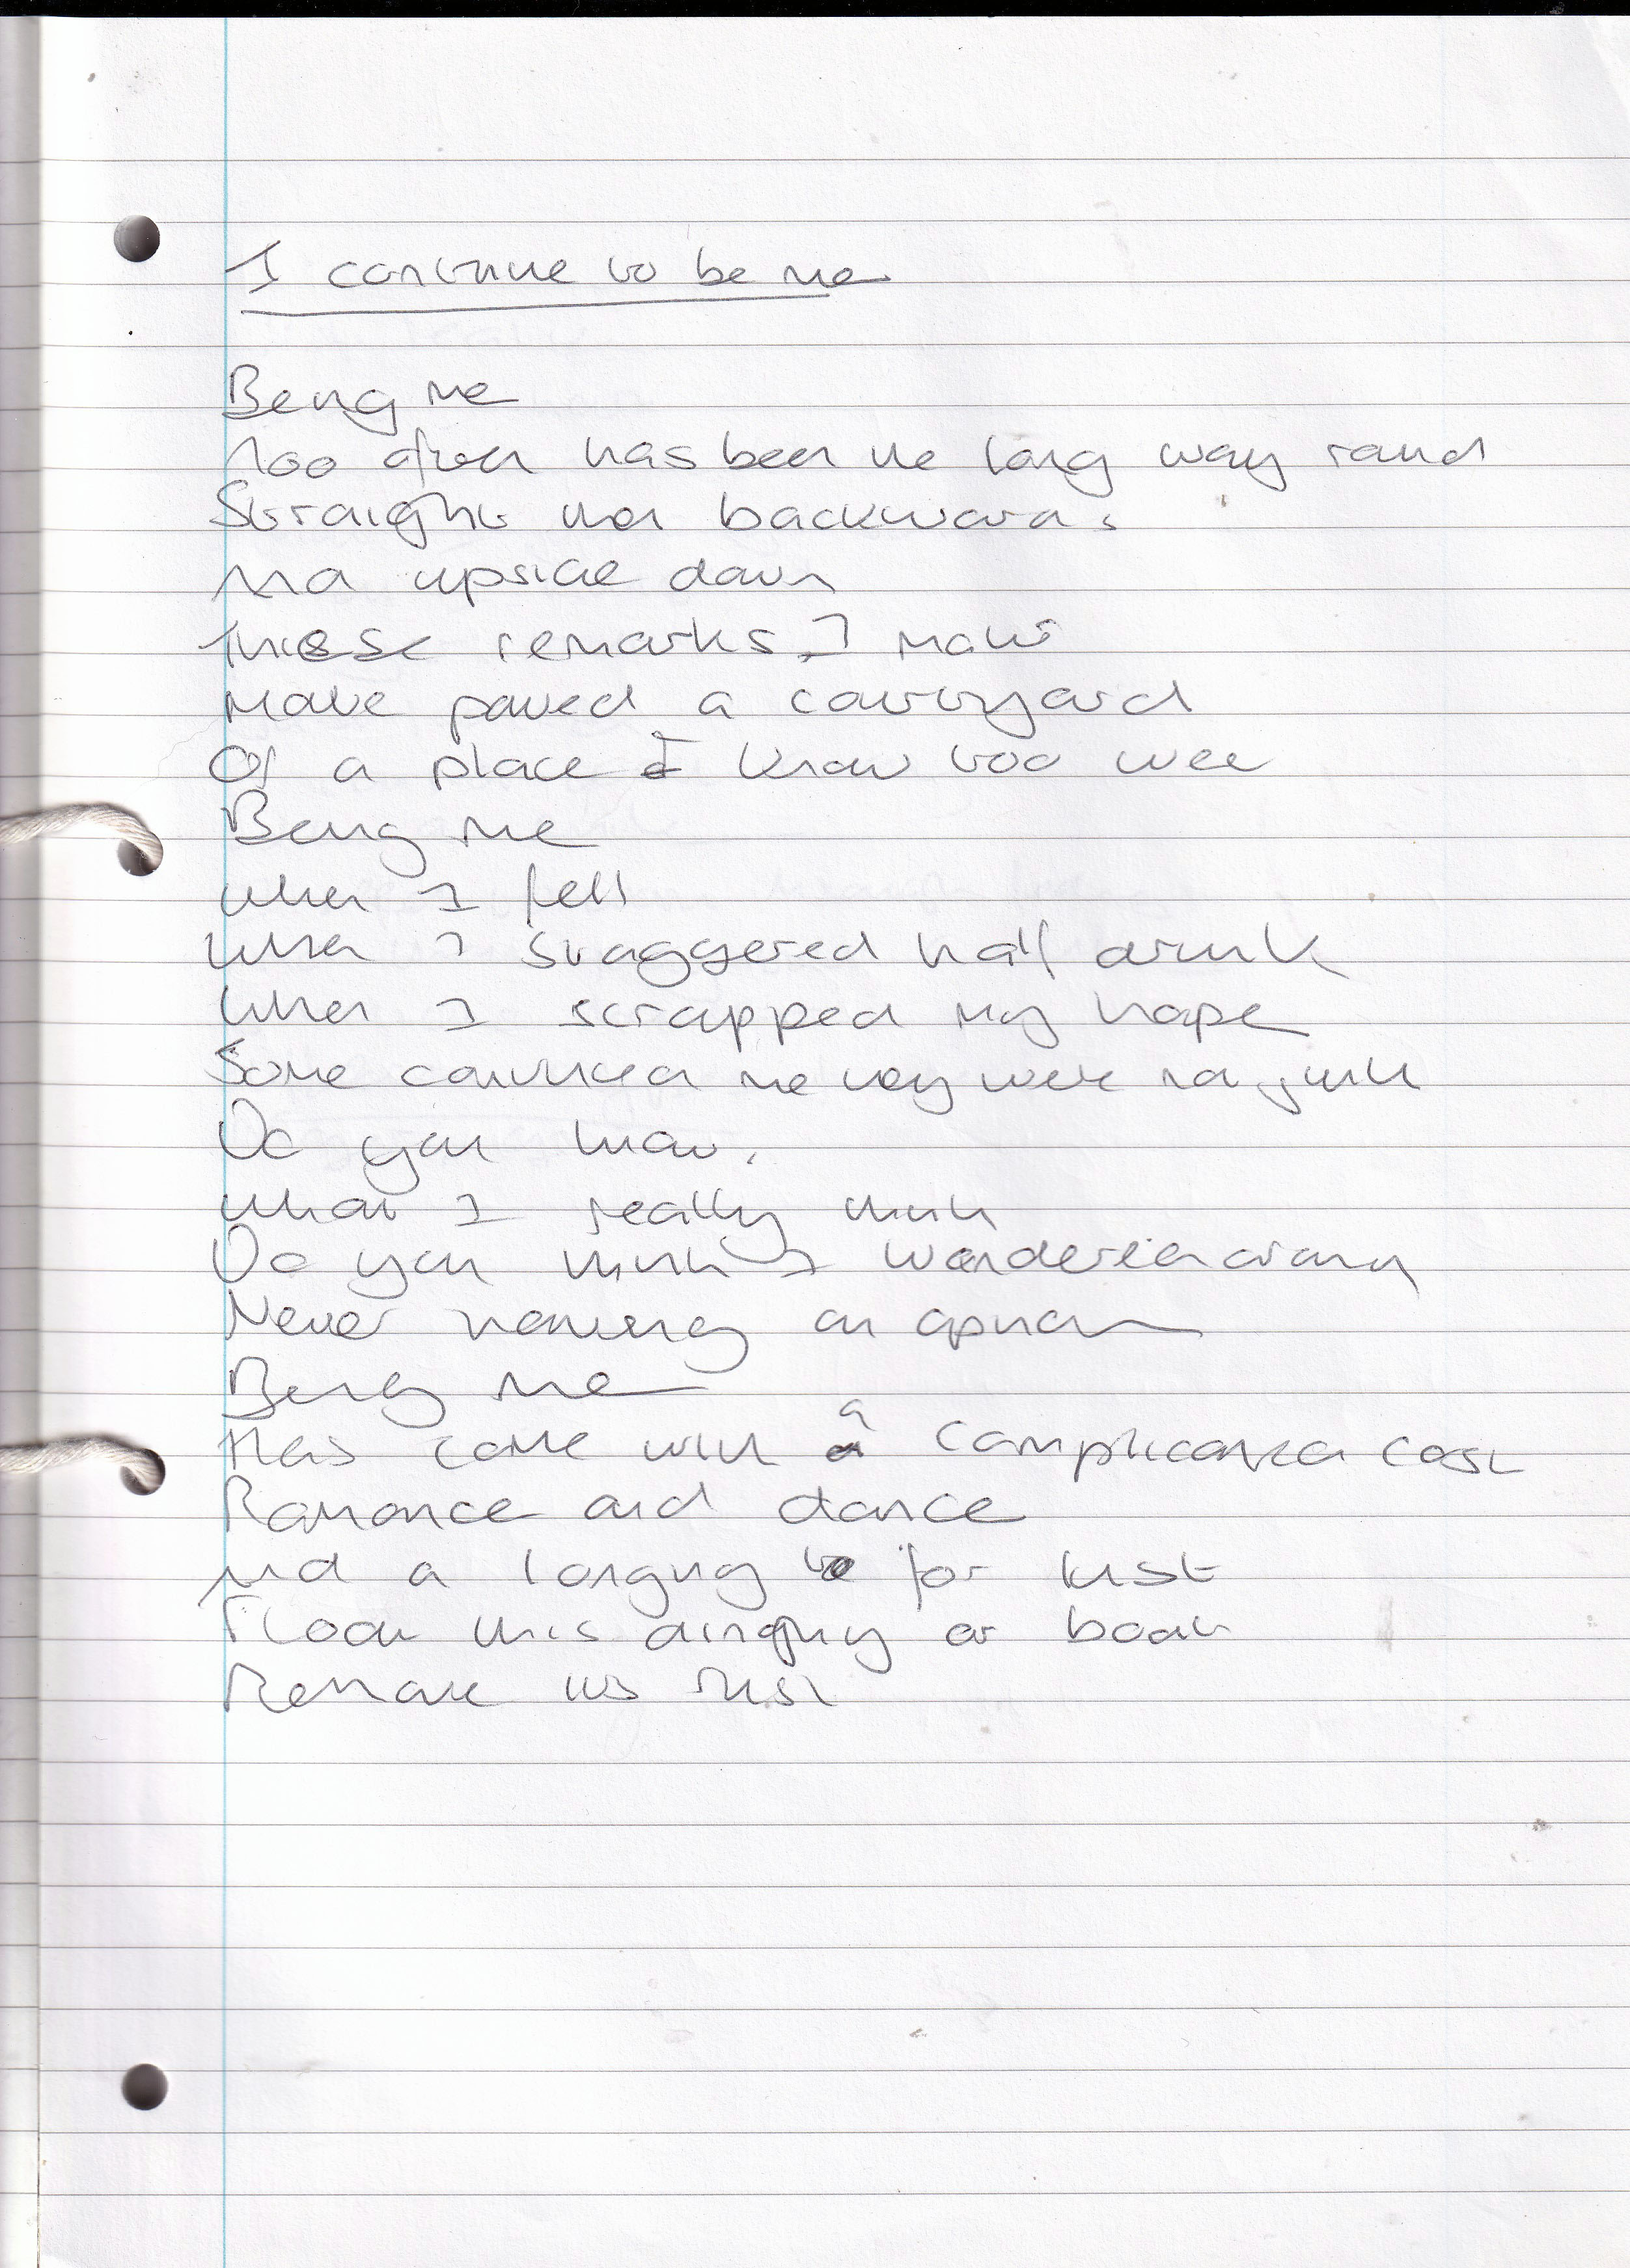 I continue to be me
Being me
Too often has been the long way round
Straight then backwards
And upside down
These remarks I make
Have paved a courtyard
Of a place I know too well
Being me
When I fell
When I staggered half drunk
When I scrapped my hope
Some convinced me they were no junk
Do you know,
What I really think
Do you think I wandered around
Never having an opinion
Being me
Has come with a complicated cost
Romance and dance
And a longing for lust
Float this dinghy or boat
Remove its rust